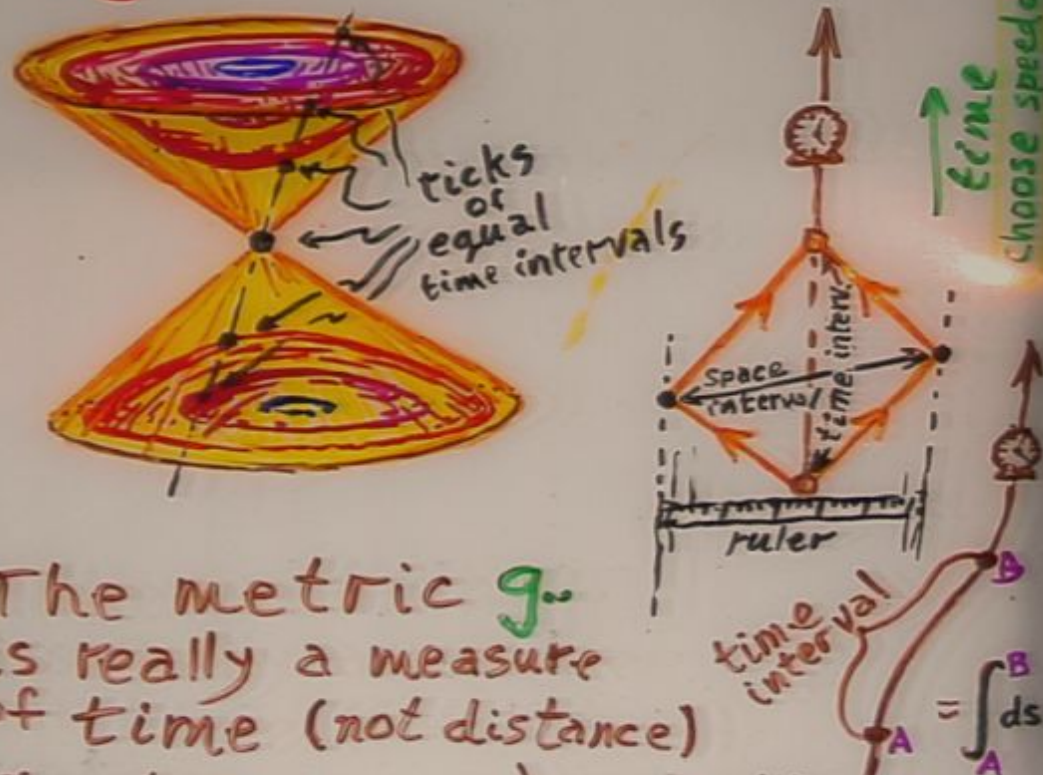 ticks
of
equal
time intervals
time
choose speed
space
interval
time interv.
ruler
The metric g..
is really a measure
of time (not distance)
time
interval
B
A
= ∫
B
A
ds